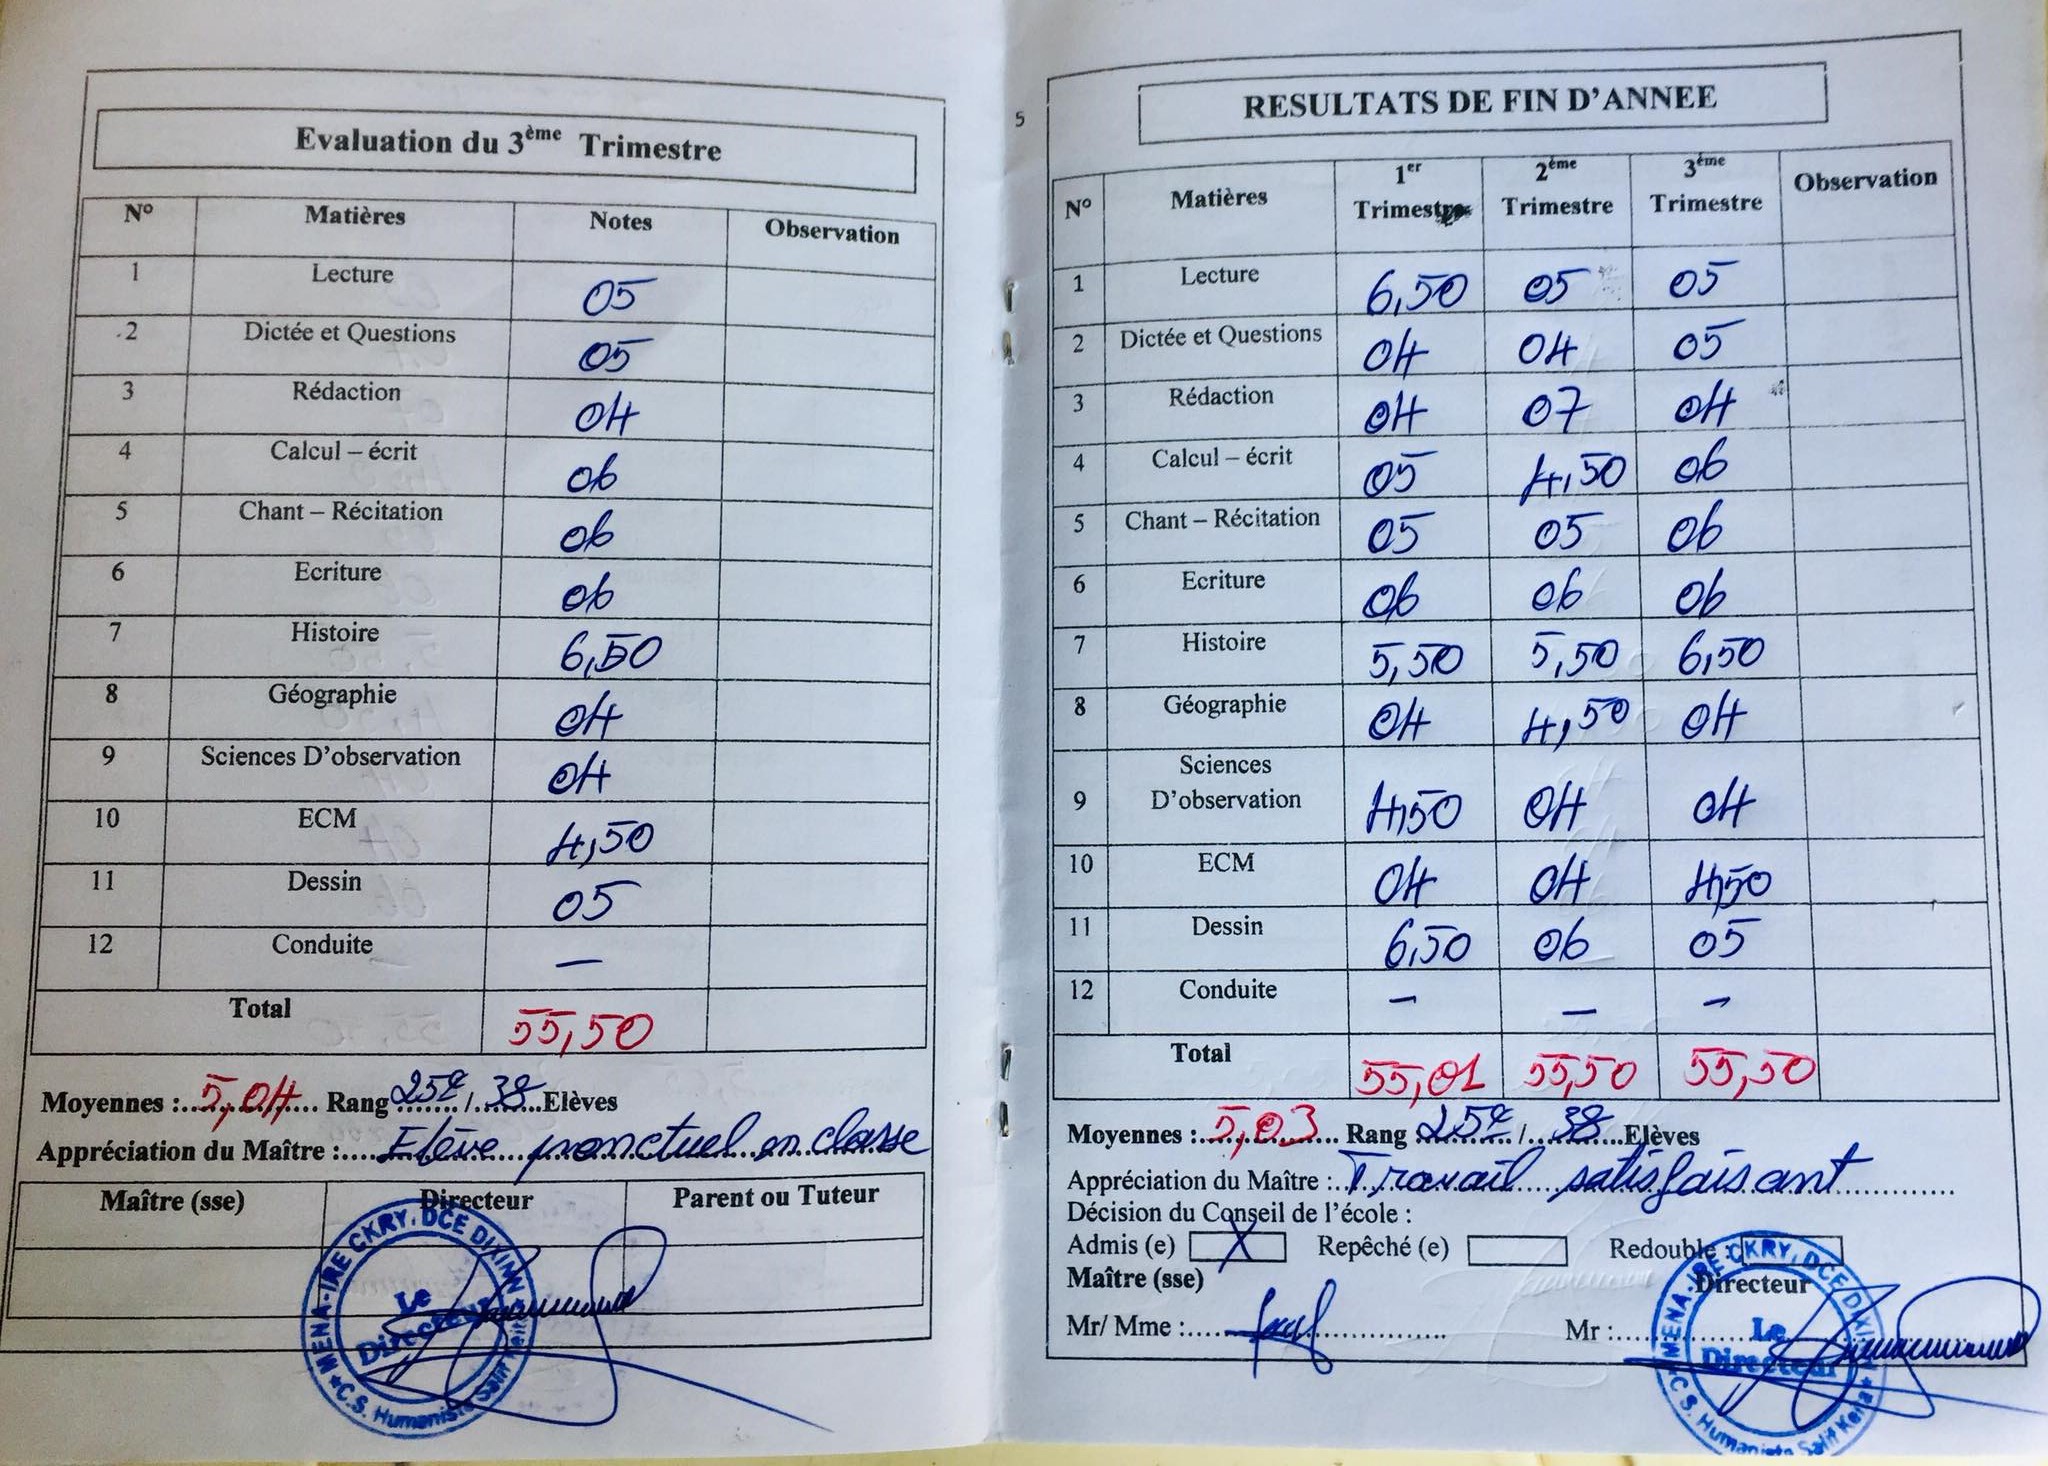 Evaluation du 3ème Trimestre
N° Matières Notes Observation
1 Lecture 05
2 Dictée et Questions 05
3 Rédaction 04
4 Calcul – écrit 06
5 Chant – Récitation 06
6 Ecriture 06
7 Histoire 6,50
8 Géographie 04
9 Sciences D'observation 04
10 ECM 4,50
11 Dessin 05
12 Conduite —
Total 55,50
Moyennes : 5,04 Rang 25e / 38 Elèves
Appréciation du Maître : Elève ponctuel en classe
Maître (sse) Directeur Parent ou Tuteur
MENA-IRE CKRY, DCE DIXINN
Le
Directeur
C.S. Humaniste Salif Keita
5
RESULTATS DE FIN D'ANNEE
N° Matières 1er Trimestre 2ème Trimestre 3ème Trimestre Observation
1 Lecture 6,50 05 05
2 Dictée et Questions 04 04 05
3 Rédaction 04 07 04
4 Calcul – écrit 05 4,50 06
5 Chant – Récitation 05 05 06
6 Ecriture 06 06 06
7 Histoire 5,50 5,50 6,50
8 Géographie 04 4,50 04
9 Sciences D'observation 4,50 04 04
10 ECM 04 04 4,50
11 Dessin 6,50 06 05
12 Conduite — — —
Total 55,01 55,50 55,50
Moyennes : 5,03 Rang 25e / 38 Elèves
Appréciation du Maître : Travail satisfaisant
Décision du Conseil de l'école :
Admis (e) X Repêché (e) Redouble :
Maître (sse) Directeur
Mr/ Mme : Mr :
MENA-IRE CKRY, DCE DIXINN
Le
Directeur
C.S. Humaniste Salif Keita